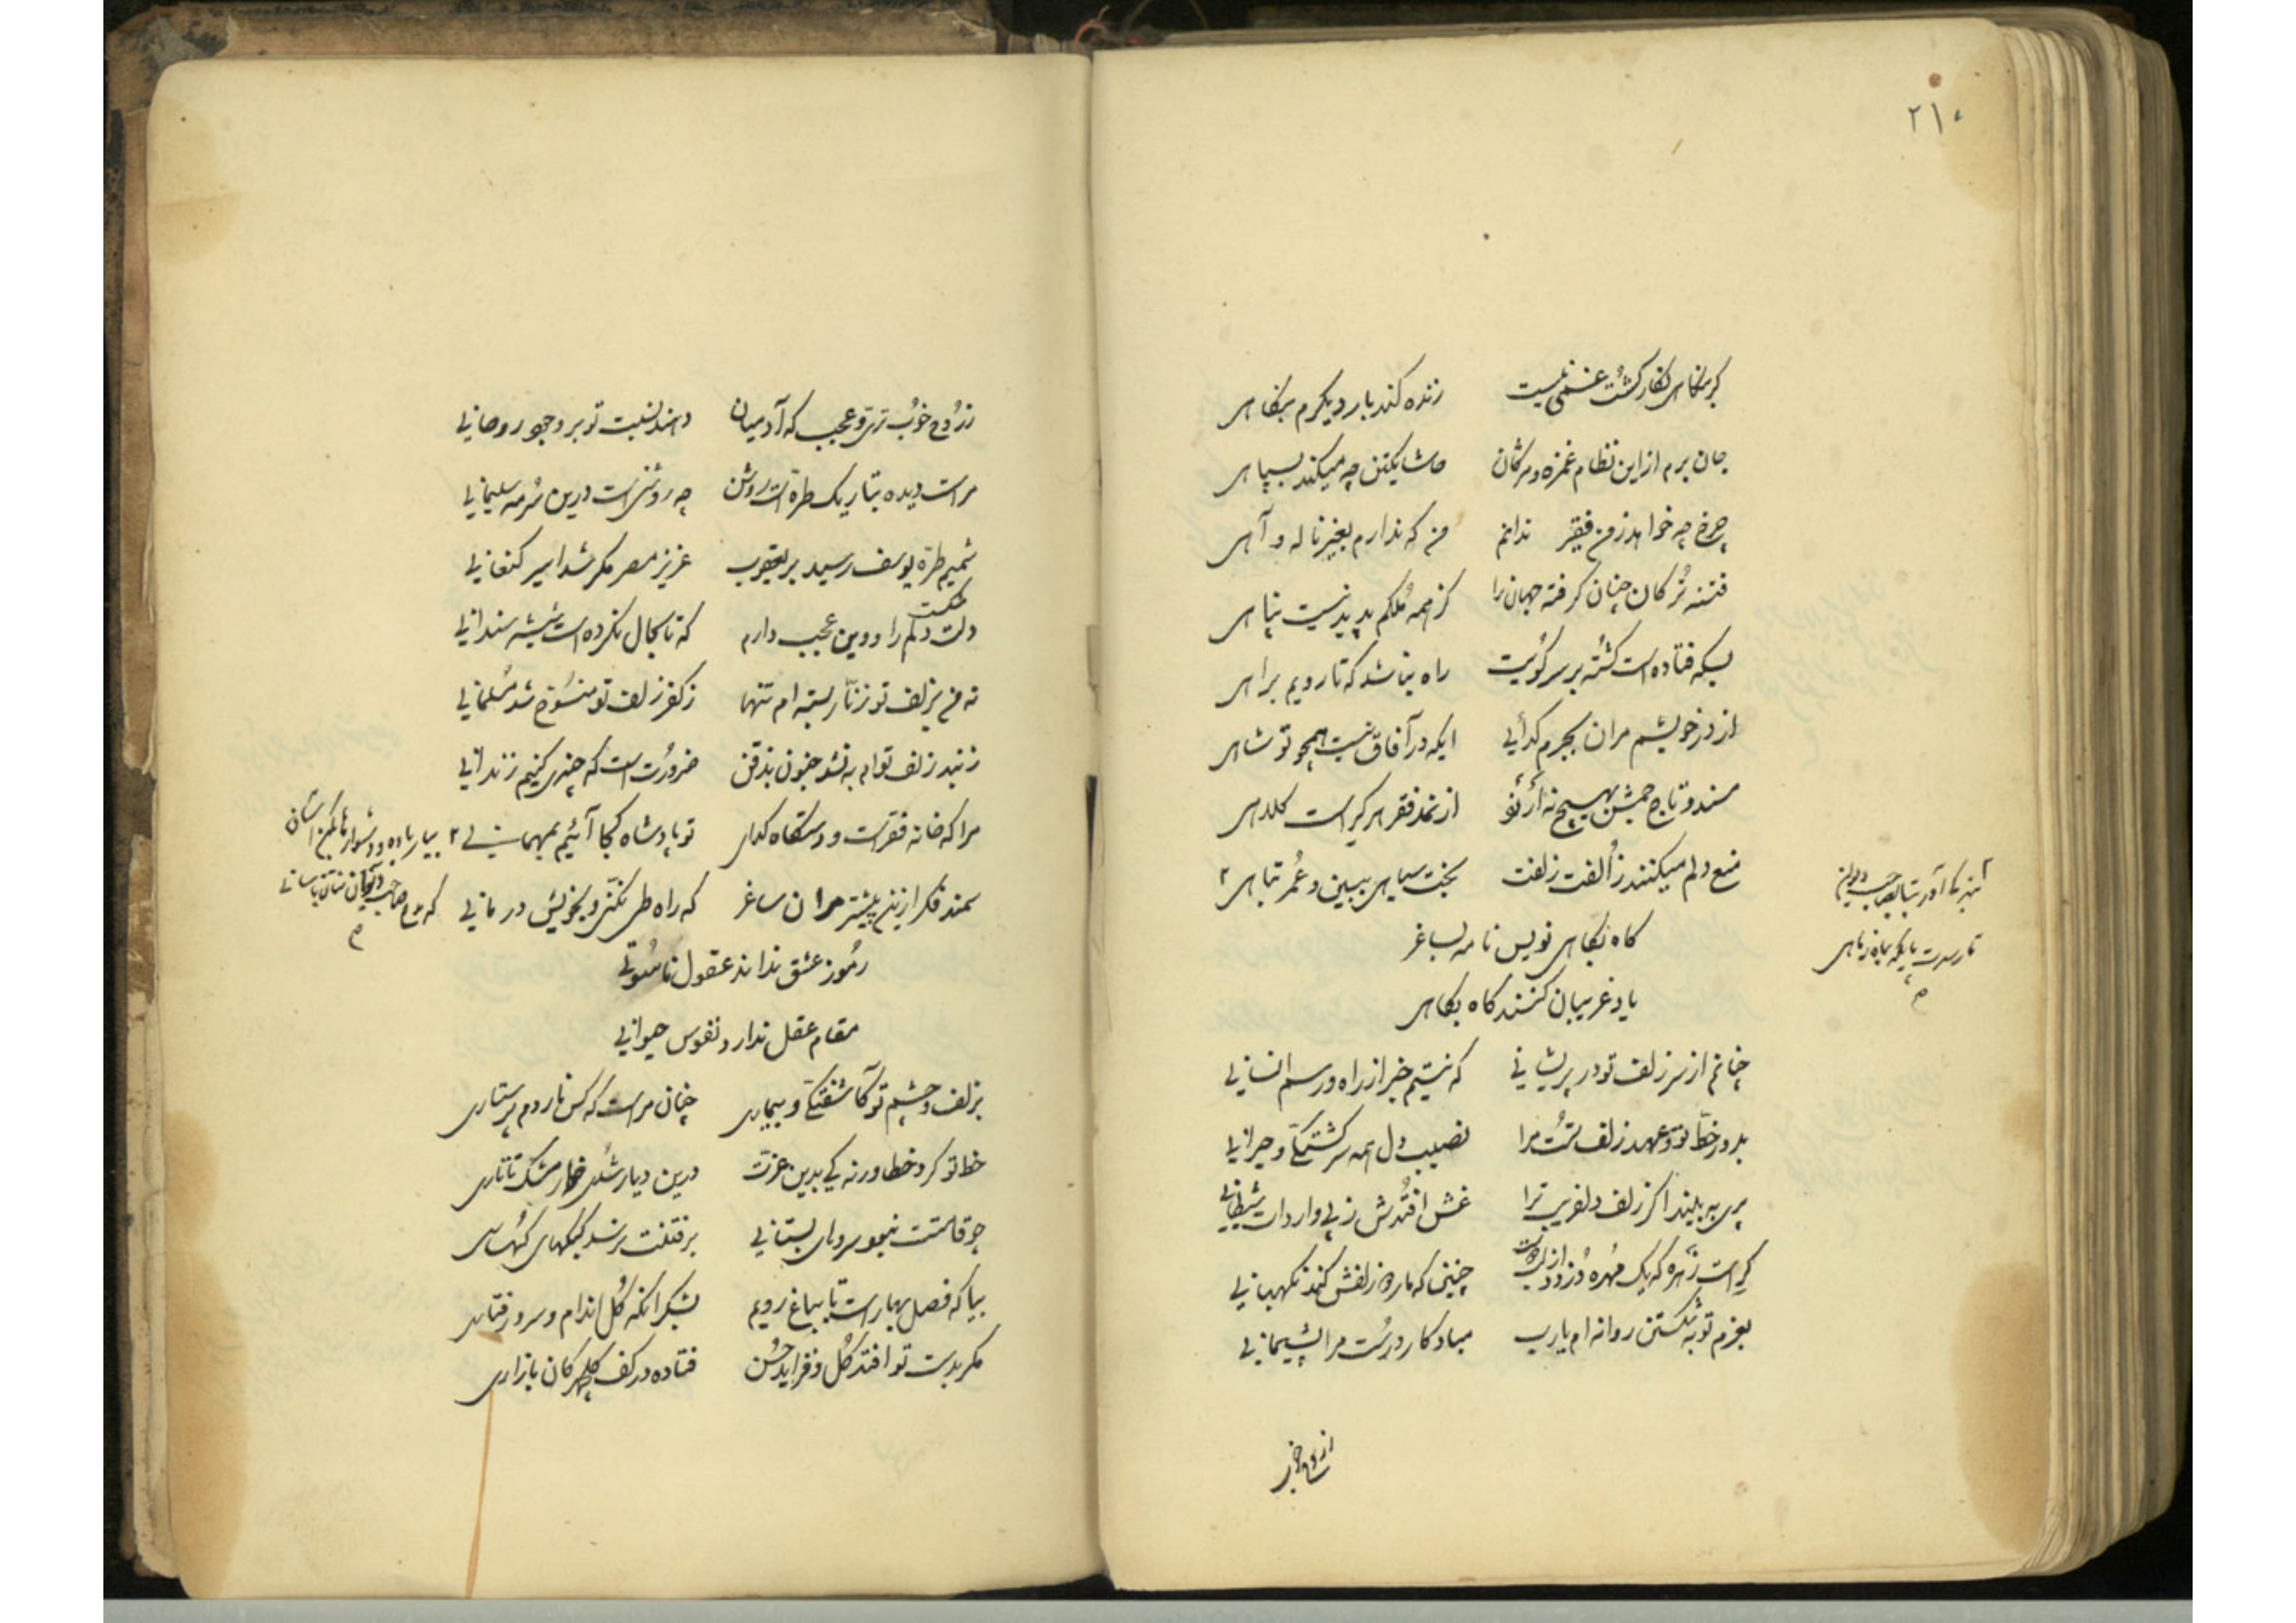 ۲۱۰
گر بنگاهی نگار کشت غمی نیست زنده کند بار دیگرم بنگاهی
جان برم از این نظام غمزه و مژگان حاشا یکتن چه میکند بسپاهی
چرخ چه خواهد ز من فقیر ندانم من که ندارم بغیر ناله و آهی
فتنه ترکان چنان گرفته جهان را کز همه ملکم پدید نیست پناهی
بسکه فتاده است کشته بر سر کویت راه نباشد که تا رویم براهی
از در خویشم مران بجرم گدائی ایکه در آفاق نیست همچو تو شاهی
مسند و تاج جمش بهیچ نه ارزد از نمد فقر هر کراست کلاهی
منع دلم میکنند ز الفت زلفت بخت سیاهی ببین و عمر تباهی ۲
گاه نگاهی نویس نامه بساغر
یاد غریبان کنند گاه بگاهی
چنانم از سر زلف تو در پریشانی که نیستم خبر از راه و رسم انسانی
بدور خط تو و عهد زلف تست مرا نصیب دل همه سرگشتگی و حیرانی
پری به بیند اگر زلف دلفریب ترا غش افتدش ز پی واردات شیطانی
کراست زهره که یک مهره دزدد از چنین که مار دو زلفش کند نگهبانی
بعزم توبه شکستن روانه ام یارب مباد کار درست مرا پشیمانی
تا رسدت پایگه بماه ز ماهی
م
ز روح خوب تری و عجب که آدمیان دهند نسبت تو بر وجود روحانی
مراست دیده بتاریک طره ات روشن چه روشنی است درین سرمه سلیمانی
شمیم طره یوسف رسید بر یعقوب عزیز مصر مگر شد اسیر کنعانی
دلت شکست دلم را و وین عجب دارم که تا بحال نکرده است شیشه سندانی
نه من بزلف تو زنار بسته ام تنها ز کفر زلف تو منسوخ شد مسلمانی
ز بند زلف توام به نشو جنون بذقن ضرورت است که چندی کنیم زندانی
مرا که خانه فقر است و دستگاه گدای تو پادشاه کجا آئیم بمهمانی ۲
سمند فکر ازین پیشتر مران ساغر که راه طی نکنی و بخویش در مانی
بیار باده و دشوار ما بکن آسان
م
رموز عشق نداند عقول ناسوتی
مقام عقل ندارد نفوس حیوانی
بزلف و چشم تو کآشفتگی و بیماری چنان مراست که کس ناردم پرستاری
خط تو کرد خطا ورنه کی بدین عزت درین دیار شدی خوار مشک تاتاری
چو قامتت نبود سروهای بستانی برفتنت نرسد کبکهای کهساری
بیا که فصل بهار است تا بباغ رویم بشکر آنکه گل اندام و سرو رفتاری
مگر بدست تو افتد گل و فزاید حسن فتاده در کف گلچهرکان بازاری